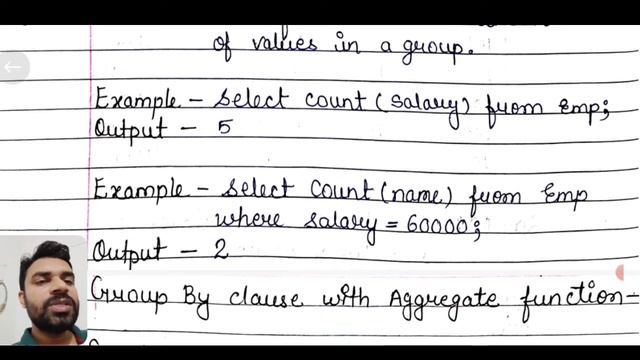 of values in a group.
Example - Select Count (Salary) from Emp;
Output - 5
Example - Select Count (name) from Emp
where salary = 60000;
Output - 2
Group By clause with Aggregate function -